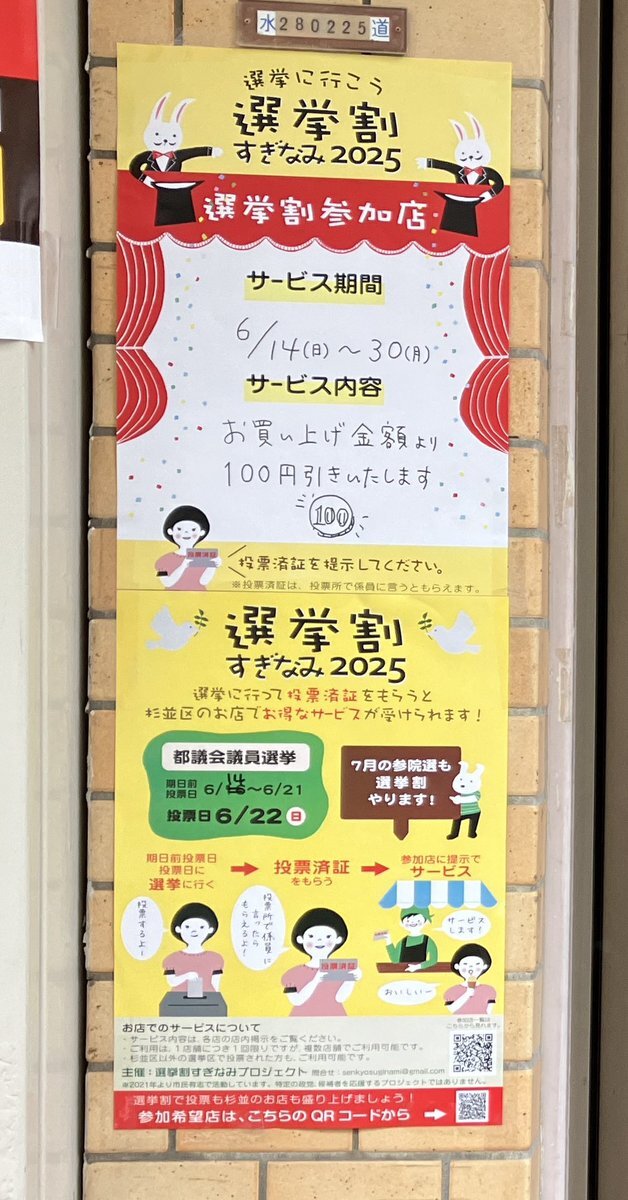 水280225道
選挙に行こう
選挙割
すぎなみ2025
選挙割参加店
サービス期間
6/14(日)～30(月)
サービス内容
お買い上げ金額より
100円引きいたします
100
投票済証
投票済証を提示してください。
※投票済証は、投票所で係員に言うともらえます。
選挙割
すぎなみ2025
選挙に行って投票済証をもらうと
杉並区のお店でお得なサービスが受けられます！
都議会議員選挙
期日前
投票日 6/14～6/21
投票日 6/22日
7月の参院選も
選挙割
やります！
期日前投票日
投票日に
選挙に行く
投票済証
をもらう
参加店に提示で
サービス
投票するよー
投票所で係員に
言ったら
もらえるよ！
投票済証
サービス
します！
おいしいー
お店でのサービスについて
・サービス内容は、各店の店内掲示をご覧ください。
・ご利用は、1店舗につき1回限りですが、複数店舗でご利用可能です。
・杉並区以外の選挙区で投票された方も、ご利用可能です。
参加店一覧は
こちらから見れます。
主催：選挙割すぎなみプロジェクト 問合せ：senkyosuginami@gmail.com
※2021年より市民有志で活動しています。特定の政党、候補者を応援するプロジェクトではありません。
選挙割で投票も杉並のお店も盛り上げましょう！
参加希望店は、こちらのQRコードから